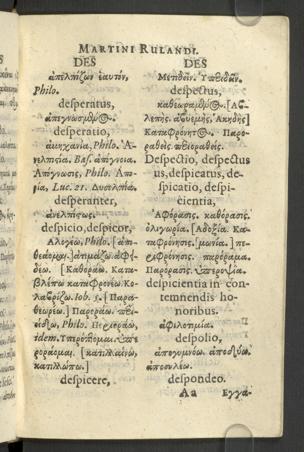 MARTINI RULANDI.
DES
ἀπελπίζων ἑαυτόν,
Philo.
desperatus,
ἀπεγνωσμένος.
desperatio,
ἀμηχανία, Philo. Ἀ-
νελπισία. Bas. ἀπόγνοια.
Ἀπόγνωσις, Philo. Ἀπο-
ρία, Luc. 21. Δυσελπισία.
desperanter,
ἀνελπίστως.
despicio, despicor,
Ἀλογέω, Philo. [ἀπο-
ἀτιμάζω.
δέω. [Καθοράω. Κατα-
βλέπω καταφρονέω. Κο-
λαφρίζω. Iob. 5. [Παρα-
θεωρέω.] Παροράω.
Philo. Περιοράω,
idem.
despicere,
DES
Μετιδεῖν. Ὑπεριδεῖν.
despectus,
Καταφρόνητος. Παρο-
ραθείς. περιοραθείς.
Despectio, despectus
us, despicatus, de-
spicatio, despi-
cientia,
Ἀφόρασις. καθόρασις.
ὀλιγωρία. [Ἀδοξία. Κα-
ταφρόνησις. [μωνία.] πε-
ριφρόνησις. παρόραμα.
Παρόρασις. ὑπεροψία.
despicientia in con-
temnendis ho-
noribus.
ἀφιλοτιμία.
despolio,
ἀπογυμνόω. ἀποδύω.
ἀποσυλέω.
despondeo.
Aa Εγγα-